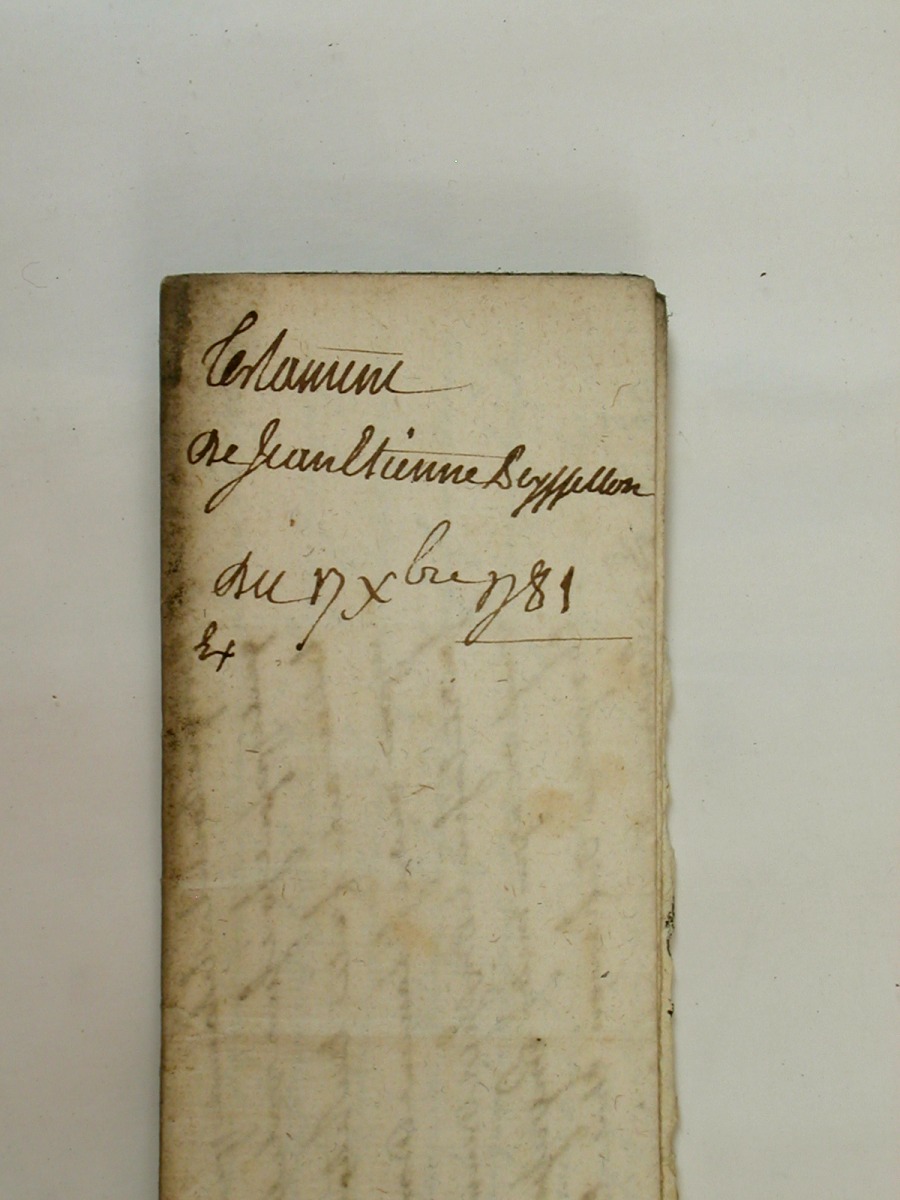 Testament
de Jean Etienne Beyssellon
Du 17 Xbre 1781
Ex